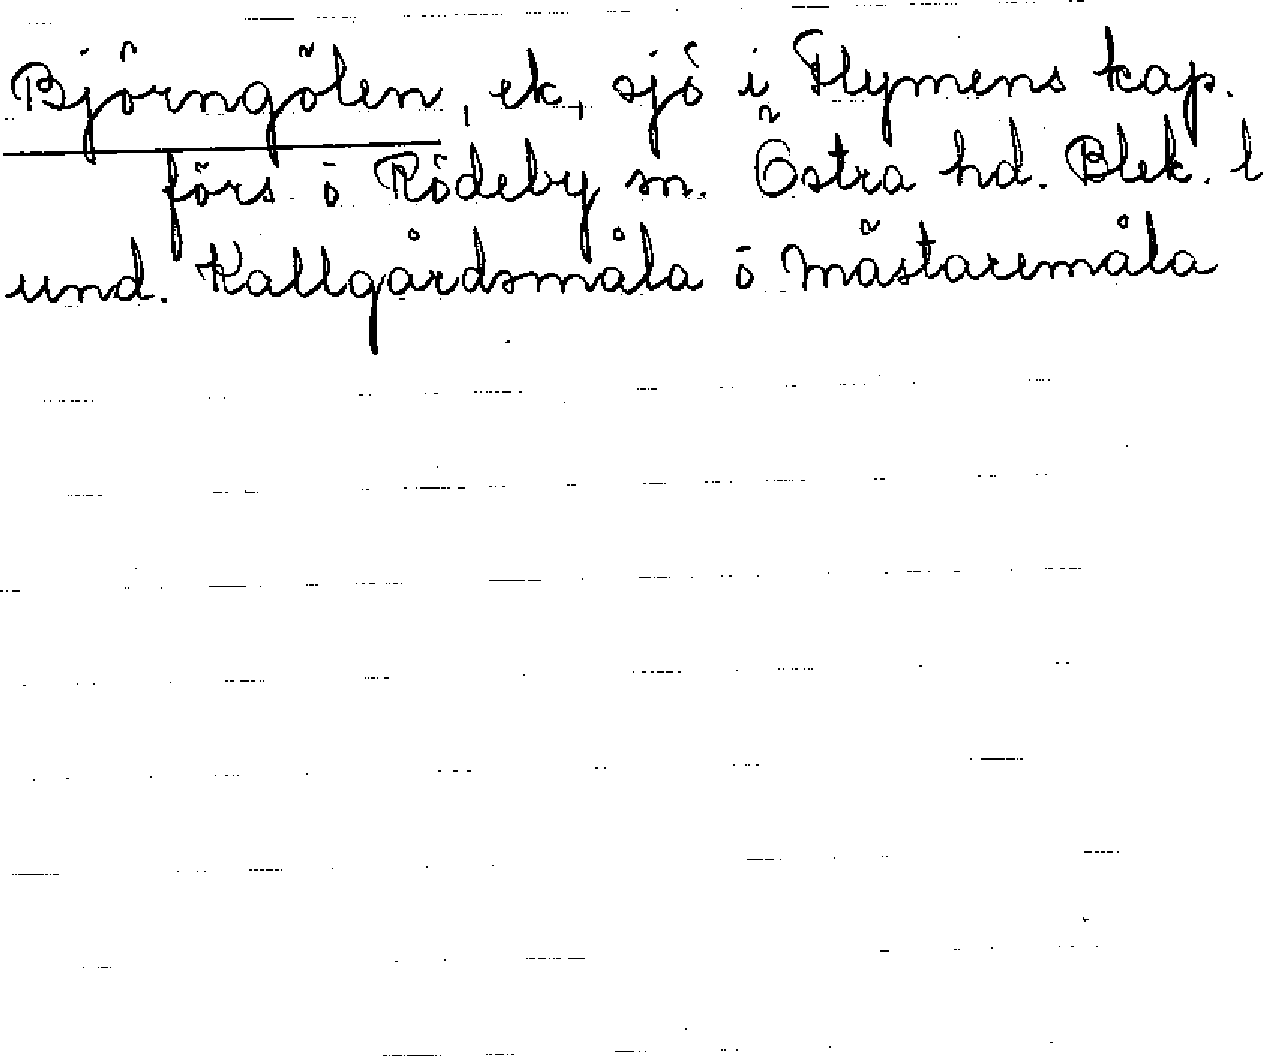 Björngölen, ek, sjö i Flymens kap.
förs. o Rödeby sn. Östra hd. Blek. l
und. Kallgårdsmåla o Mästaremåla